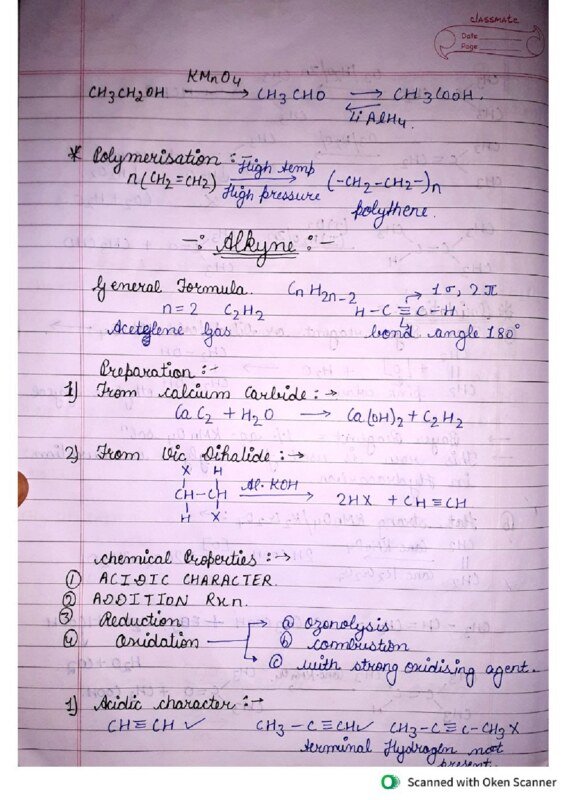 classmate
Date
Page
KMnO4
CH3CH2OH ⟶ CH3CHO ⟶ CH3COOH.
LiAlH4
* Polymerisation :- High temp
n(CH2=CH2) ⟶ (-CH2-CH2-)n
High pressure polythene.
-: Alkyne :-
General Formula. CnH2n-2 → 1σ, 2π
n=2 C2H2 H-C≡C-H
Acetylene Gas bond angle 180°
Preparation :-
1) From calcium Carbide :→
CaC2 + H2O ⟶ Ca(OH)2 + C2H2
2) From Vic Dihalide :→
X H
CH-CH Al·KOH ⟶ 2HX + CH≡CH
H X
chemical Properties :→
① ACIDIC CHARACTER.
② ADDITION Rxn.
③ Reduction → ⓐ ozonolysis
④ Oxidation ⓑ combustion
→ ⓒ with strong oxidising agent.
1) Acidic character :→
CH≡CH ✓ CH3-C≡CH ✓ CH3-C≡C-CH3 X
terminal Hydrogen not
present.
Scanned with Oken Scanner